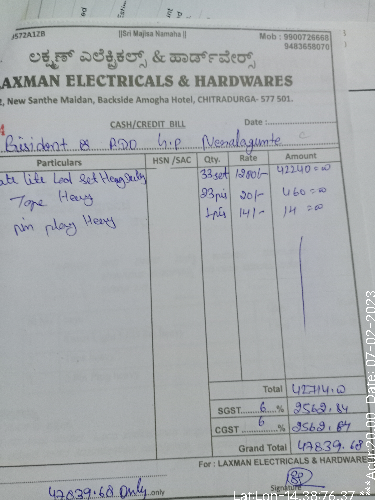 9572A1ZB ||Sri Majisa Namaha || Mob : 9900726668
9483658070
ಲಕ್ಷ್ಮಣ್ ಎಲೆಕ್ಟ್ರಿಕಲ್ಸ್ & ಹಾರ್ಡ್‌ವೇರ್ಸ್
LAXMAN ELECTRICALS & HARDWARES
2, New Santhe Maidan, Backside Amogha Hotel, CHITRADURGA- 577 501.
CASH/CREDIT BILL Date :
President & PDO G.P Neeralagunte
Particulars HSN / SAC Qty. Rate Amount
Lite Led Set Heavy 33 set 1280/- 42240=00
Tape Heavy 23 pis 20/- 460=00
pin plug Heavy 1 pis 14/- 14=00
Total 42714.0
SGST 6 % 2562.84
CGST 6 % 2562.84
Grand Total 47839.68
For : LAXMAN ELECTRICALS & HARDWARES
47839.68 Only only
Signature
LatLon-14.38,76.37
***Acur:20.00 Date: 07-02-2023